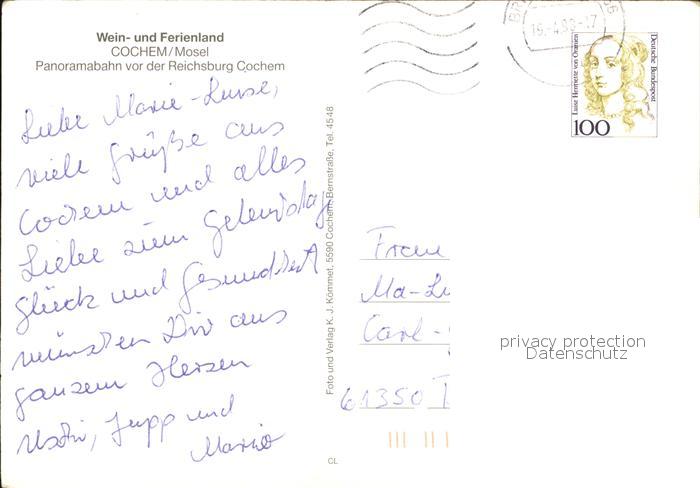 Wein- und Ferienland
COCHEM/Mosel
Panoramabahn vor der Reichsburg Cochem
Liebe Marie-Luise,
viele Grüße aus
Cochem und alles
Liebe zum Geburtstag
Glück und Gesundheit
wünschen Dir aus
ganzem Herzen
Jupp und
Foto und Verlag K. J. Kömmet, 5590 Cochem, Bernstraße, Tel. 4548
CL
Luise Henriette von Oranien
Deutsche Bundespost
100
Frau
Ma-Lu
Carl-
61350
privacy protection
Datenschutz